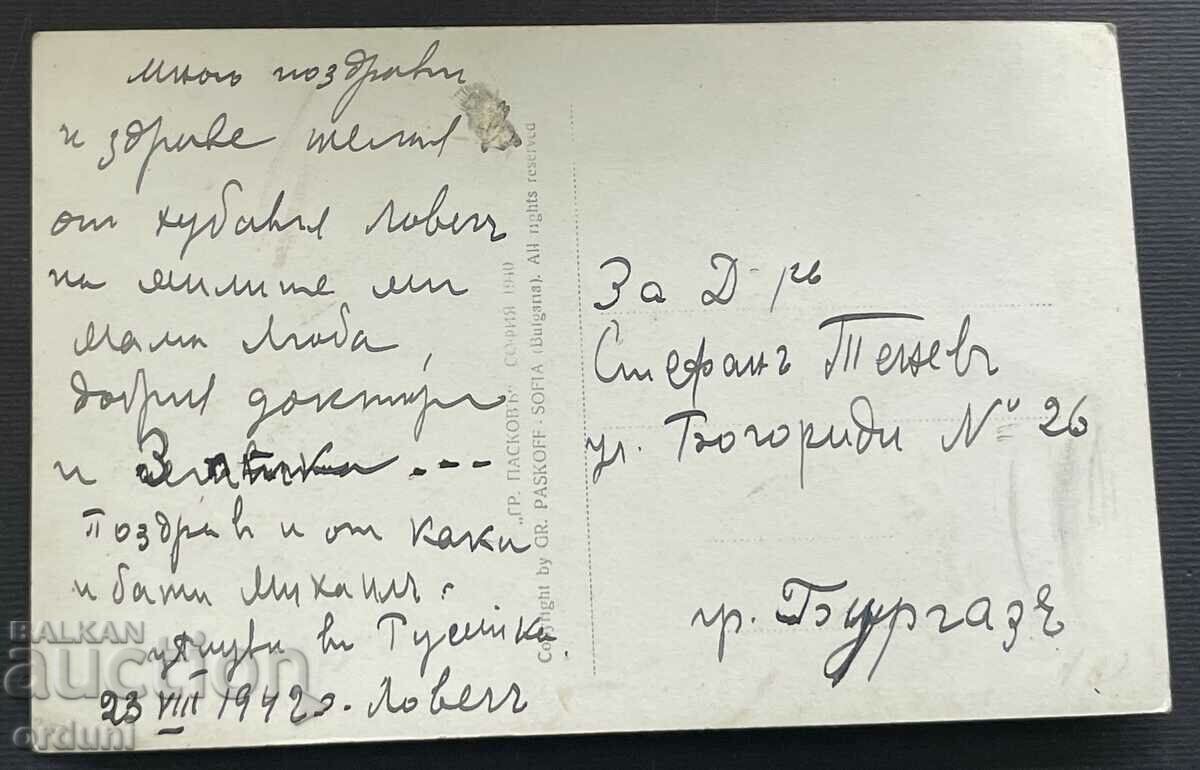 много поздрави
и здраве
от хубавия Ловечъ
на милите ми
мама Люба,
добрия докторъ
и ---
Поздрав и от кака
и бати Михаилъ.
ви
23 VIII 1942 г. Ловечъ
"ГР. ПАСКОВЪ" СОФИЯ 1940
Copyright by GR. PASKOFF - SOFIA (Bulgaria). All rights reserved
За Д-ръ
Стефанъ Теневъ
ул. Богориди № 26
гр. Бургазъ
BALKAN
auction
orduni